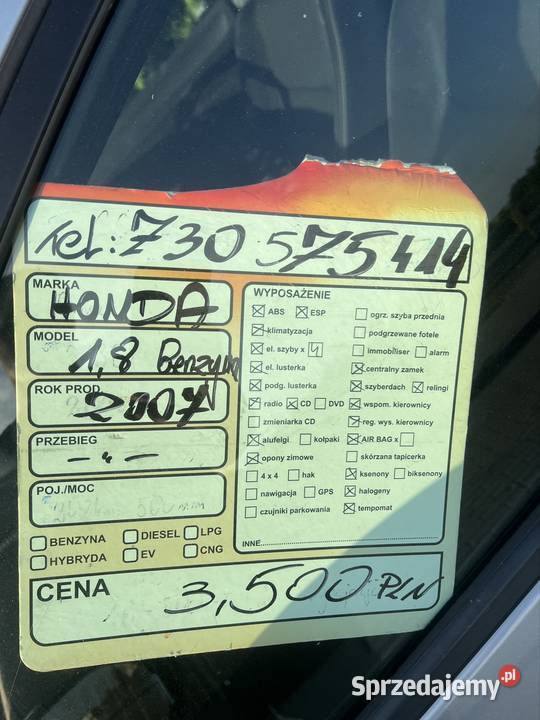 Tel: 730 575 414
MARKA HONDA
MODEL 1,8 Benzyna
ROK PROD. 2007
PRZEBIEG -"-
POJ./MOC
BENZYNA DIESEL LPG
HYBRYDA EV CNG
WYPOSAŻENIE
ABS ESP ogrz. szyba przednia
klimatyzacja podgrzewane fotele
el. szyby x 4 immobiliser alarm
el. lusterka centralny zamek
podg. lusterka szyberdach relingi
radio CD DVD wspom. kierownicy
zmieniarka CD reg. wys. kierownicy
alufelgi kołpaki AIR BAG x
opony zimowe skórzana tapicerka
4 x 4 hak ksenony biksenony
nawigacja GPS halogeny
czujniki parkowania tempomat
INNE
CENA 3,500 PLN
Sprzedajemy.pl